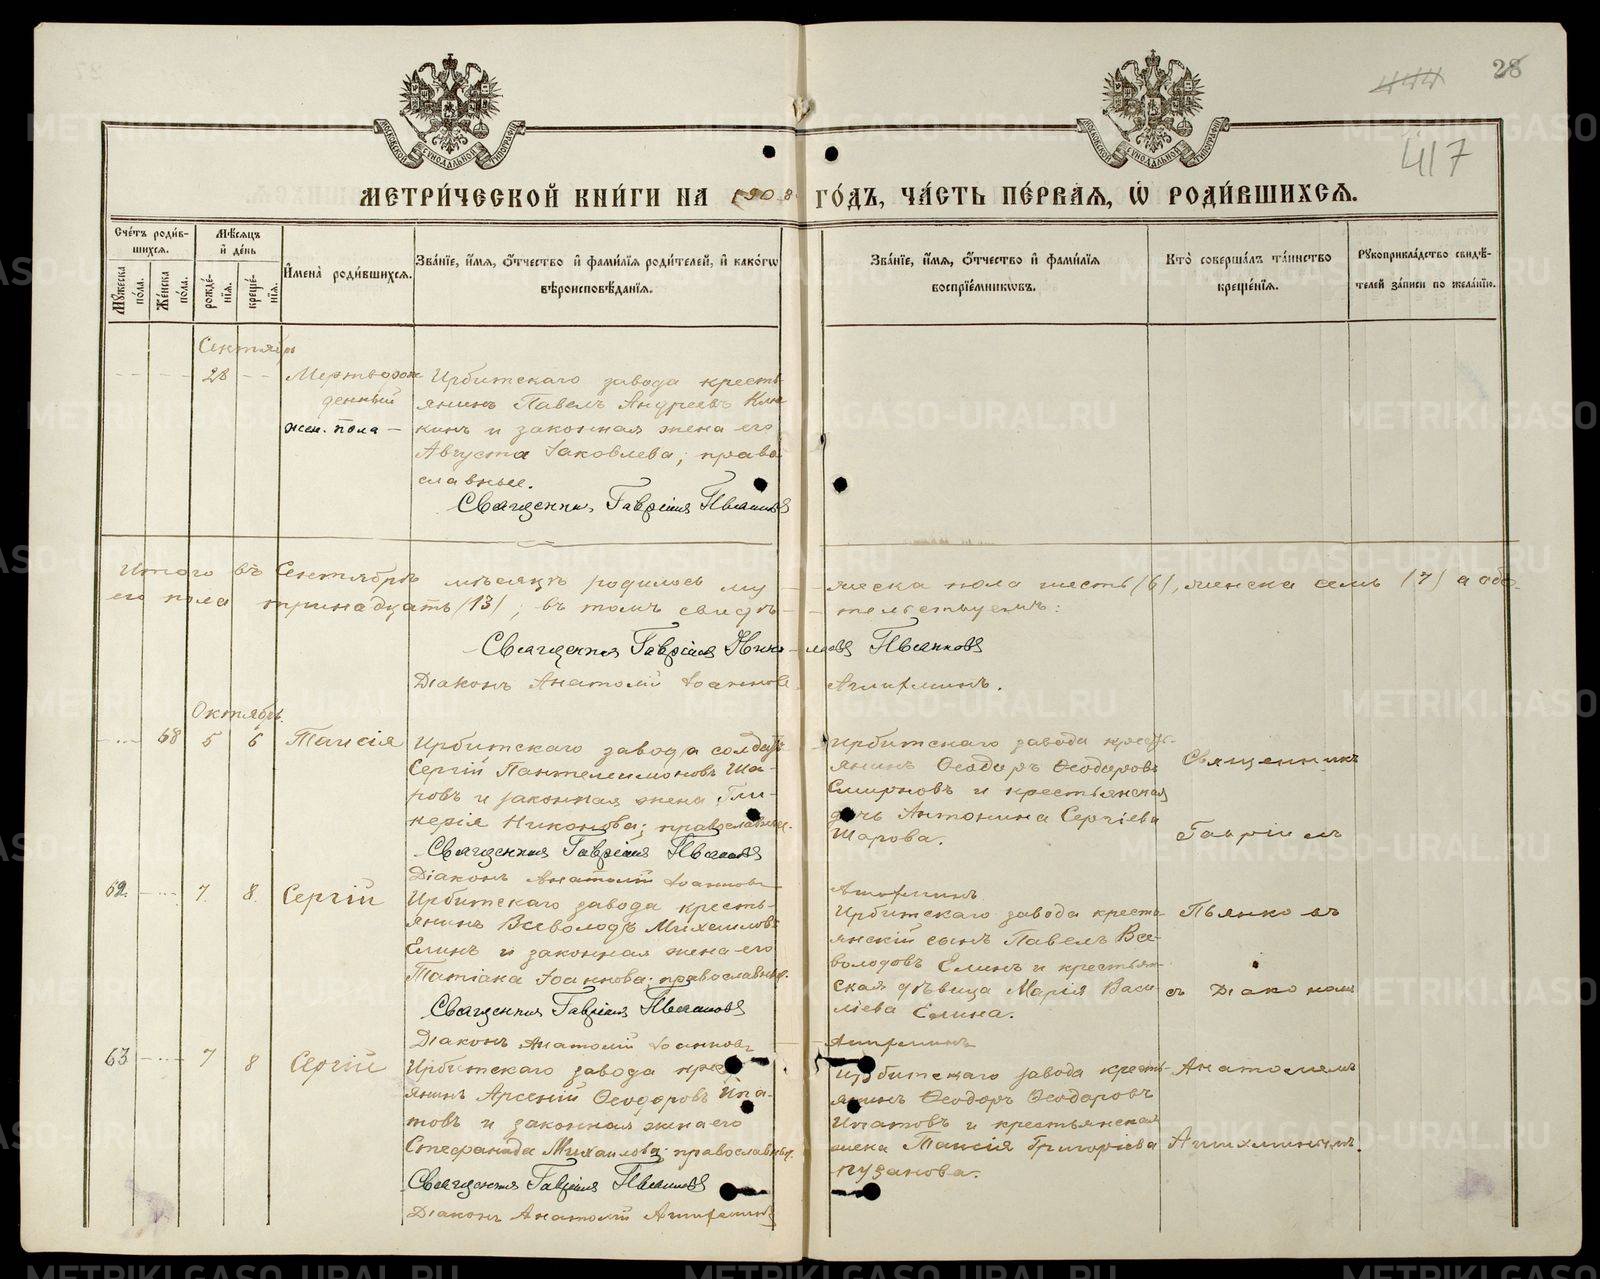 28
444
417
МОСКОВСКОЙ СѴНОДАЛЬНОЙ ТИПОГРАФІИ
МОСКОВСКОЙ СѴНОДАЛЬНОЙ ТИПОГРАФІИ
МЕТРИ́ЧЕСКОЙ КНИ́ГИ НА 1908 ГО́ДЪ, ЧА́СТЬ ПЕ́РВАЯ, Ѡ РОДИ́ВШИХСЯ.
Сче́тъ роди́в-
шихся.
Мꙋ́жеска по́ла.
Же́нска по́ла.
Мѣ́сяцъ
и҆ де́нь
рожде́-
нїя.
креще́-
нїя.
И҆мена̀ роди́вшихся.
Зва́нїе, и҆́мя, ѻ҆́тчество и҆ фами́лїя роди́телей, и҆ како́гѡ
вѣроисповѣ́данїя.
Зва́нїе, и҆́мя, ѻ҆́тчество и҆ фами́лїя
воспрїе́мникѡвъ.
Кто̀ соверша́лъ та́инство
креще́нїя.
Рꙋкоприкла́дство свидѣ́-
телей за́писи по жела́нїю.
Сентябрь
28 Мертворож
денный
жен. пола
Ирбитскаго завода кресть-
янинъ Павелъ Андреевъ Клю-
кинъ и законная жена его
Августа Іаковлева; право-
славные.
Священник Гавріил Пьянков
Итого въ Сентябрѣ мѣсяцѣ родилось му-жеска пола шесть (6), женска семь (7) а обо-
его пола тринадцать (13); въ томъ свидѣ-тельствуемъ:
Священник Гавріил Николаев Пьянков
Діаконъ Анатолій Іоаннов
Октябрь
68 5 6 Таисія
Ирбитскаго завода солдатъ
Сергій Пантелеимоновъ Ша-
ровъ и законная жена Гли-
керія Никонова; православные.
Священник Гавріил Пьянков
Діаконъ Анатолій Іоаннов
Ирбитскаго завода кресть-
янинъ Ѳеодоръ Ѳеодоровъ
Смирновъ и крестьянская
дочь Антонина Сергіева
Шарова.
Священникъ
Гавріилъ
62 7 8 Сергій
Ирбитскаго завода кресть-
янинъ Всеволодъ Михаиловъ
Елинъ и законная жена его
Татіана Іоаннова; православные.
Священник Гавріил Пьянков
Діаконъ Анатолій Іоаннов
Ирбитскаго завода кресть-
янскій сынъ Павелъ Все-
володовъ Елинъ и крестьян-
ская дѣвица Марія Васи-
ліева Елина.
Пьянковъ
съ Діакономъ
63 7 8 Сергій
Ирбитскаго завода крест
янинъ Арсеній Ѳеодоровъ Ипа-
товъ и законная жена его
Стефанида Михаилова; православные.
Священник Гавріил Пьянков
Діаконъ Анатолій
Ирбитскаго завода кресть-
янинъ Ѳеодоръ Ѳеодоровъ
Ипатовъ и крестьянская
жена Таисія Григоріева
Пузанова.
Анатоліемъ
METRIKI.GASO-URAL.RU